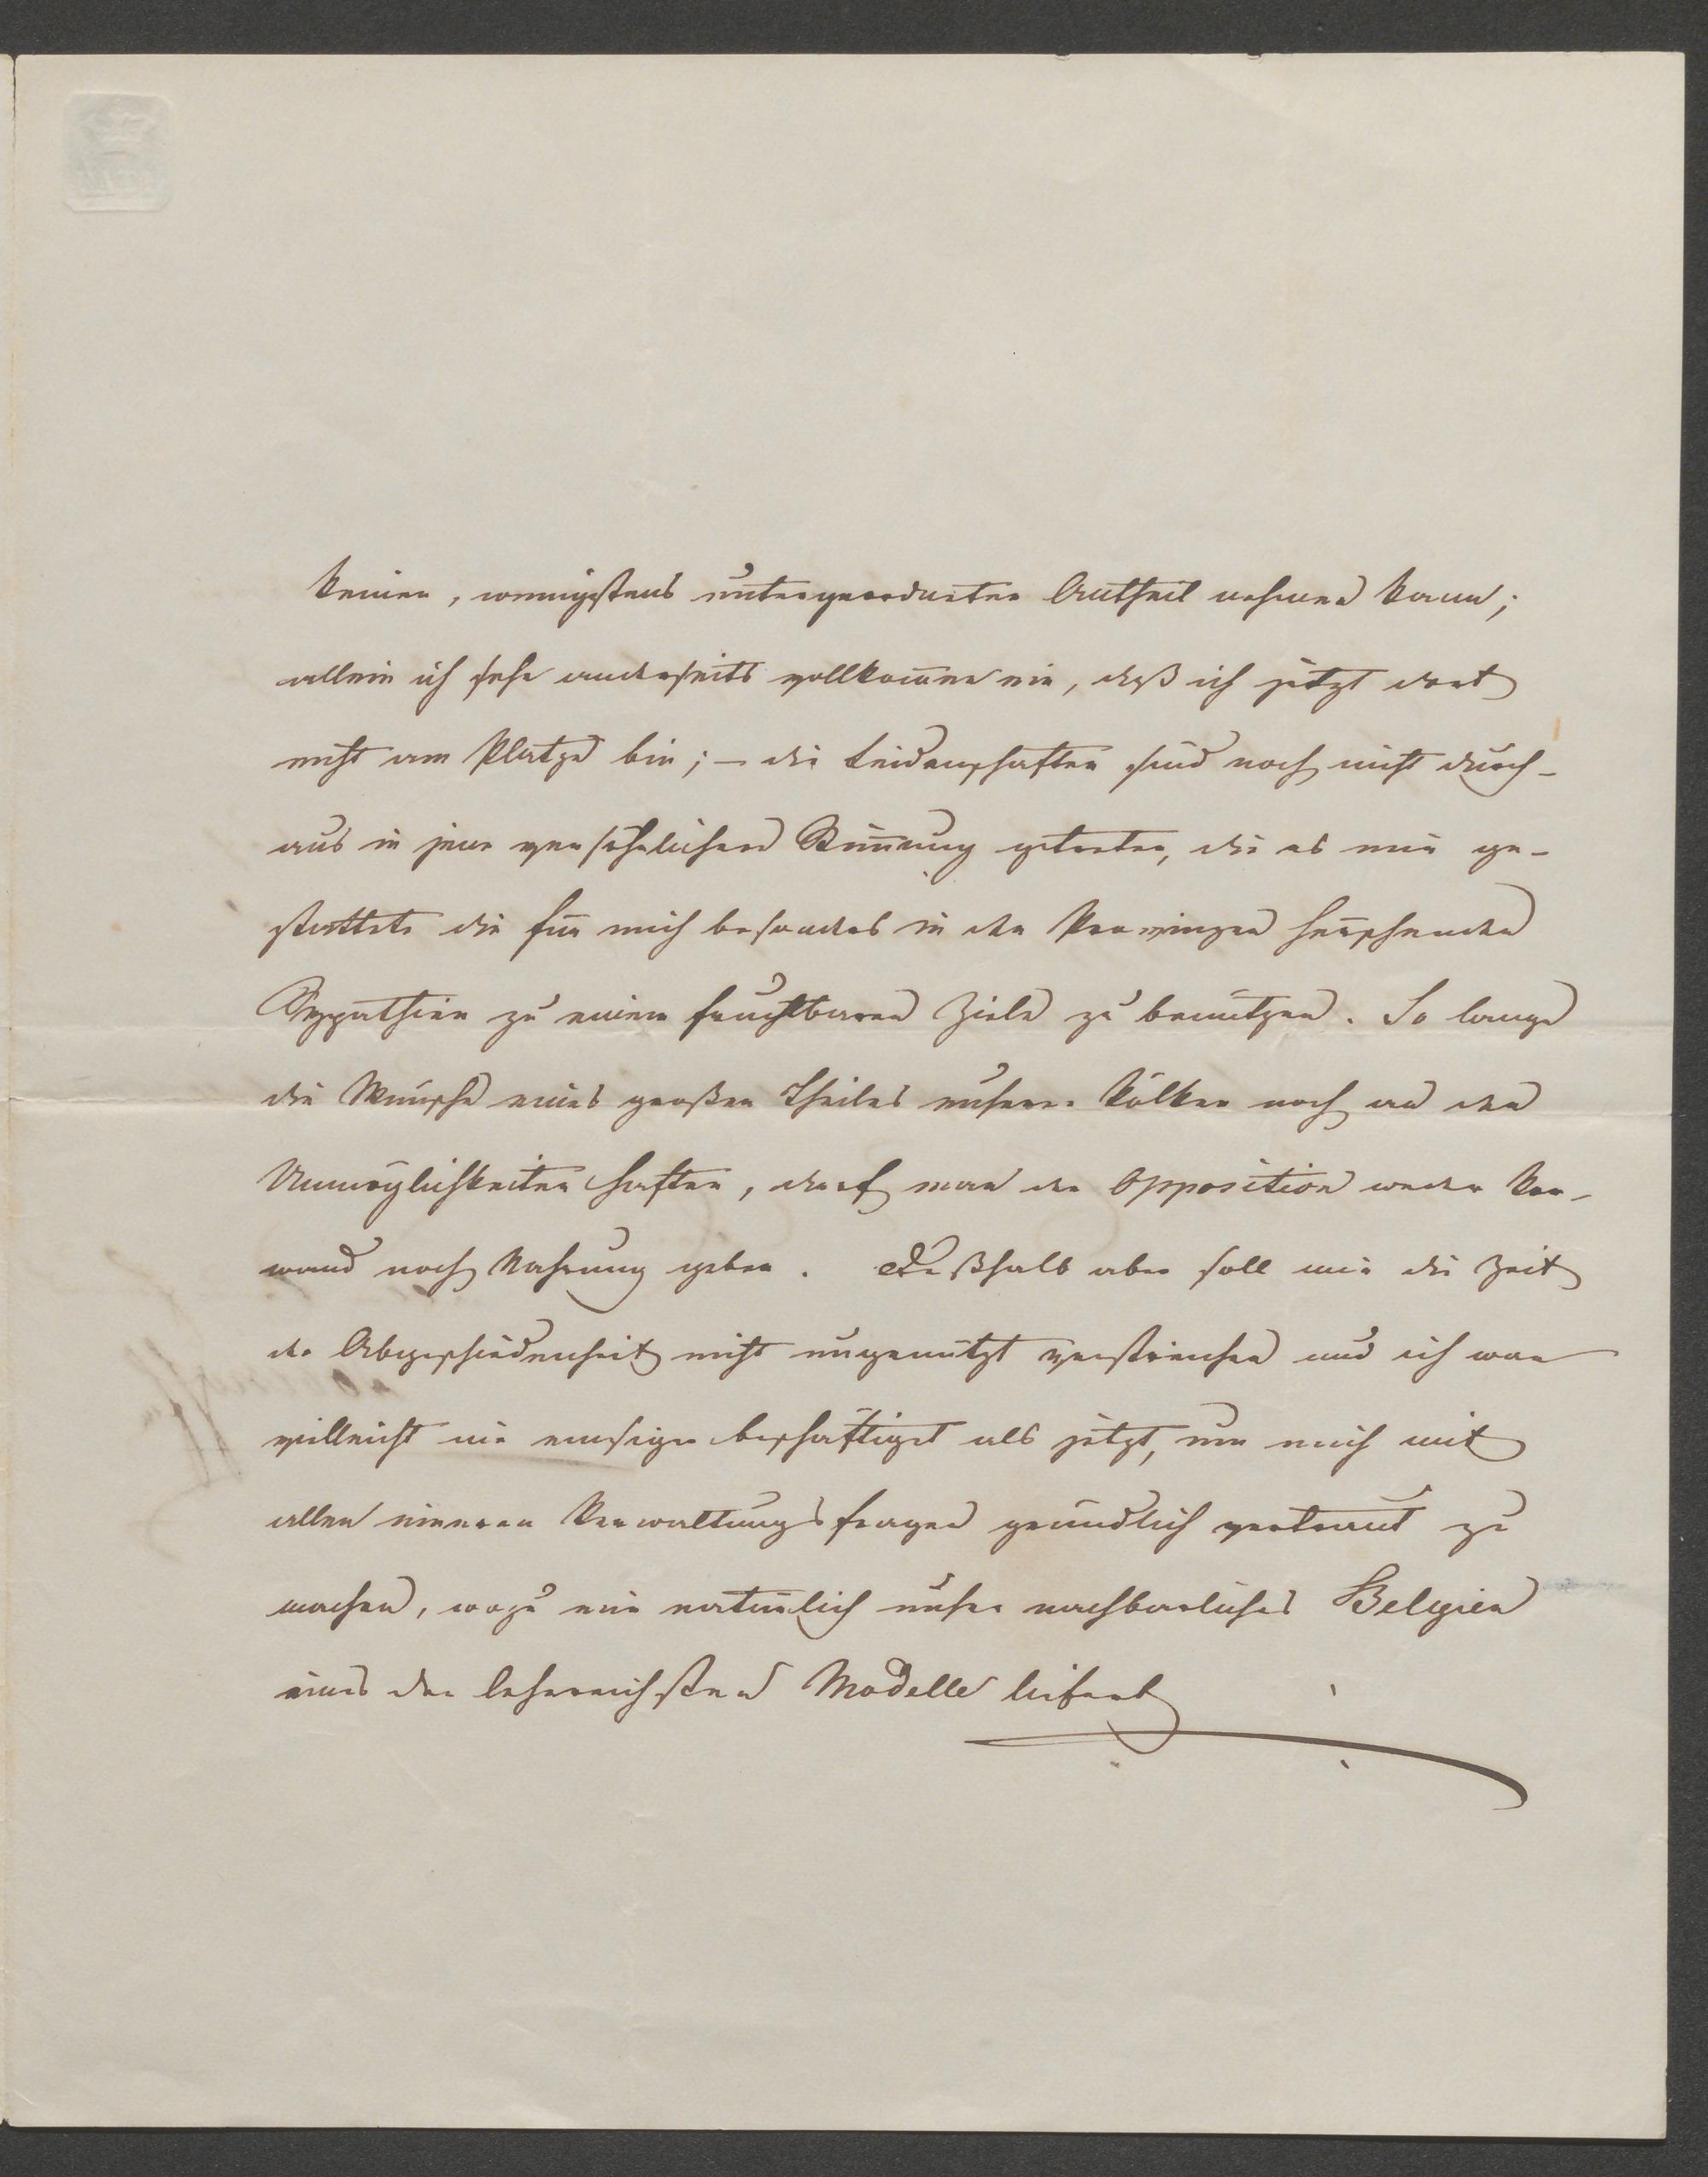 keinen, wenigstens untergeordneten Antheil nehmen kann;
allein ich sehe anderseits vollkomen ein, daß ich jetzt dort
nicht am Platze bin; – die Leidenschaften sind noch nicht durch-
aus in jene versöhnlichere Stimung getreten, die es mir ge-
stattete die für mich besonders in den Provinzen herschenden
Sympathien zu einem fruchtbaren Ziele zu benützen. So lange
die Wünsche eines großen Theiles unserer Völker noch an den
Unmöglichkeiten haften, darf man der Opposition weder Vor-
wand noch Nahrung geben. Deßhalb aber soll mir die Zeit
der Abgeschiedenheit nicht ungenützt verstreichen und ich war
villeicht nie emsiger beschäftiget als jetzt, um mich mit
allen inneren Verwaltungsfragen gründlich vertraut zu
machen, wozu mir natürlich unser nachbarliches Belgien
eines der lehrreichsten Modelle liefert